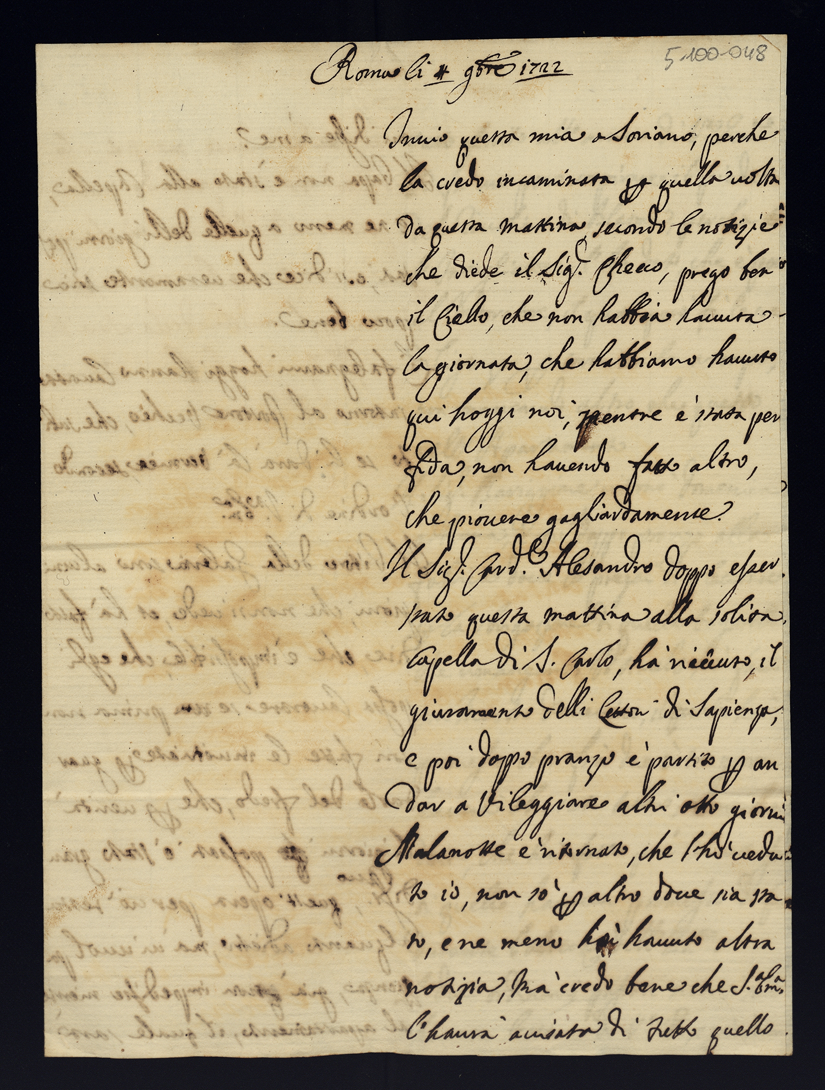 5-100-048
Roma li 4 9bre 1722
Invio questa mia a Soriano, perche
la credo incaminata per quella volta
da questa mattina, secondo le notizie
che diede il Sig.r Checco, prego ben
il Ciello, che non habbia havuta
la giornata, che habbiamo havuto
qui hoggi noi, mentre è stata per
fida, non havendo fatto altro,
che piovere gagliardamente.
Il Sig.r Card.le Alesandro doppo esser
stato questa mattina alla solita
Capella di S. Carlo, ha riceuto, il
giuramento delli Lettori di Sapienza,
e poi doppo pranzo è partito per an
dar a Vileggiare altri otto giorni
Malanotte è ritornato, che l'hò vedu
to io, non sò per altro dove sia sta
to, e ne meno hò havuto altra
notizia, mà credo bene che S.
l'haurà avisata di tutto quello